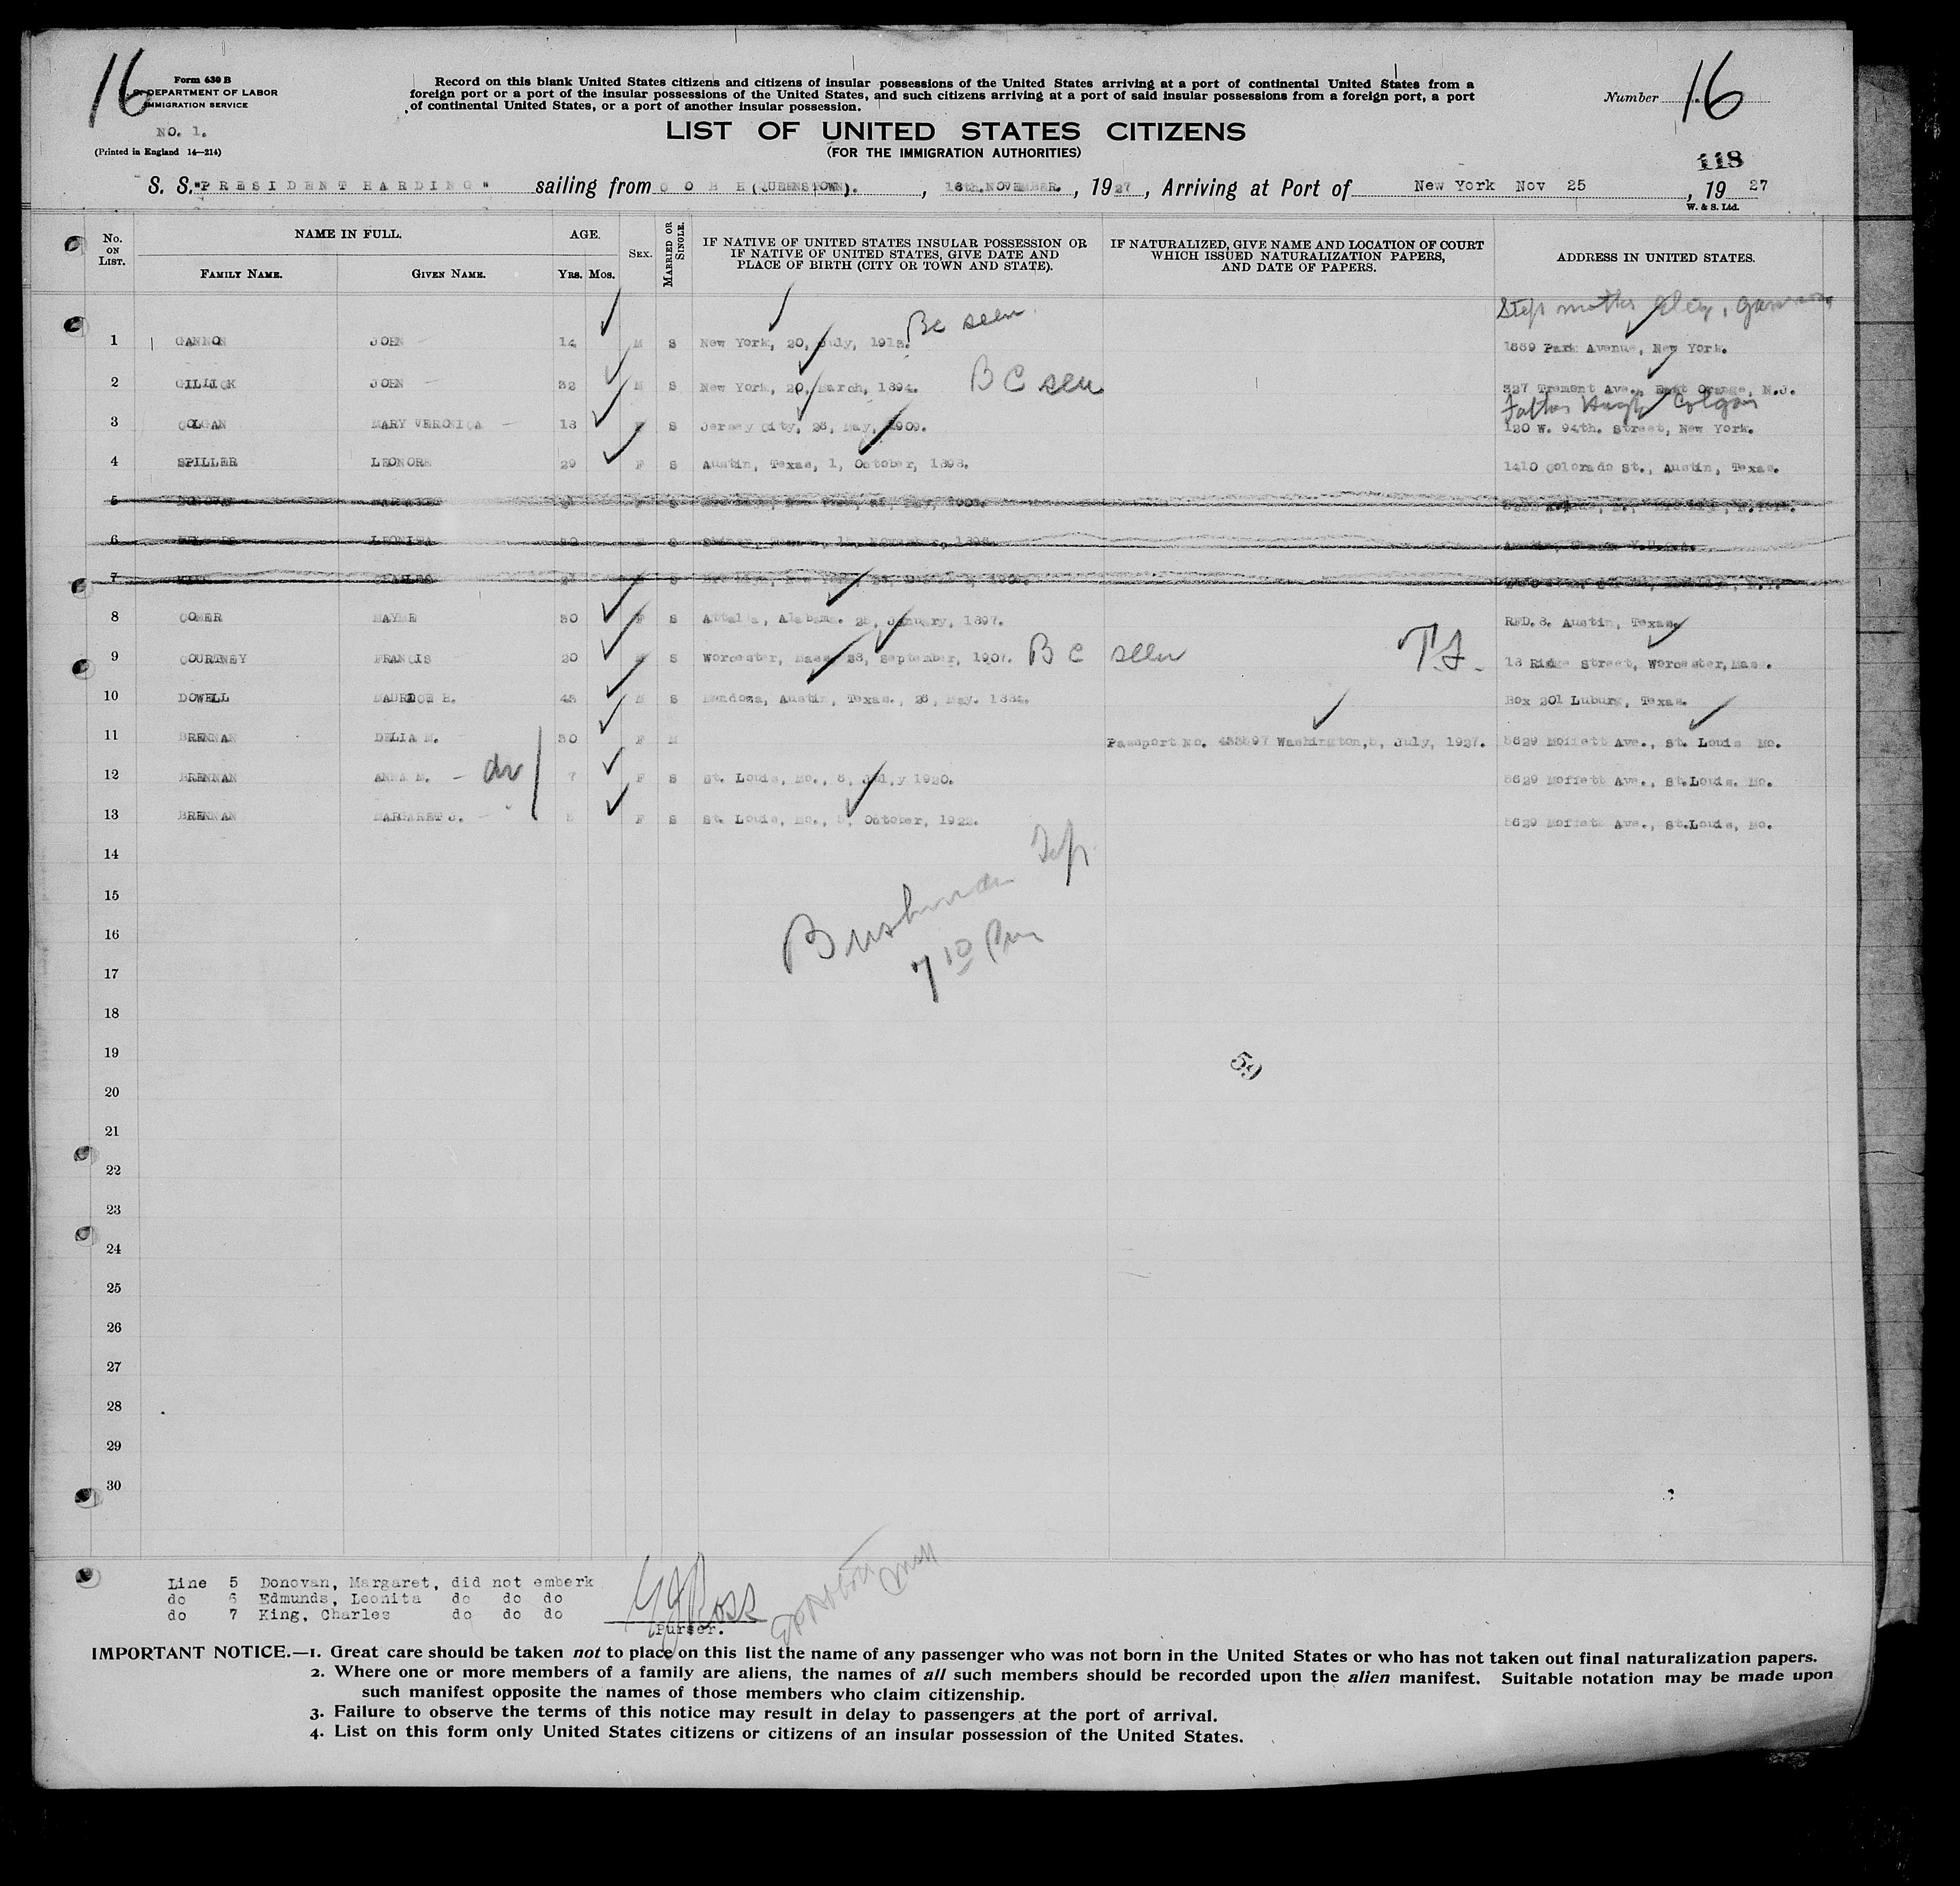 16
Form 630 B
DEPARTMENT OF LABOR
IMMIGRATION SERVICE
NO. 1.
(Printed in England 14—214)
Record on this blank United States citizens and citizens of insular possessions of the United States arriving at a port of continental United States from a
foreign port or a port of the insular possessions of the United States, and such citizens arriving at a port of said insular possessions from a foreign port, a port
of continental United States, or a port of another insular possession.
Number 16
LIST OF UNITED STATES CITIZENS
(FOR THE IMMIGRATION AUTHORITIES)
118
S. S. "PRESIDENT HARDING" sailing from COBH (QUEENSTOWN). , NOVEMBER. , 1927 , Arriving at Port of New York Nov 25 , 19 27
W. & S. Ltd.
No. ON LIST. NAME IN FULL. FAMILY NAME. GIVEN NAME. AGE. YRS. MOS. SEX. MARRIED OR SINGLE. IF NATIVE OF UNITED STATES INSULAR POSSESSION OR IF NATIVE OF UNITED STATES, GIVE DATE AND PLACE OF BIRTH (CITY OR TOWN AND STATE). IF NATURALIZED, GIVE NAME AND LOCATION OF COURT WHICH ISSUED NATURALIZATION PAPERS, AND DATE OF PAPERS. ADDRESS IN UNITED STATES.
Step mother
1 GANNON JOHN 14 M S New York, 20, July, 1913. BC seen 1889 Park Avenue, New York.
2 GILLICK JOHN 32 M S New York, 20, March, 1894. BC seen 327 Tremont Ave., East Orange, N.J.
Father Hugh Colgan
3 COLGAN MARY VERONICA 18 F S Jersey City, 28, May, 1909. 120 W. 94th. Street, New York.
4 SPILLER LEONORE 29 F S Austin, Texas, 1, October, 1898. 1410 Colorado St., Austin, Texas.
5
6 LEONITA
7 CHARLES
8 COMER MAYME 30 F S Attalla, Alabama. 25, January, 1897. RFD. 8. Austin, Texas.
9 COURTNEY FRANCIS 20 M S Worcester, Mass. 28, September, 1907. BC seen T.F. 18 Ridge Street, Worcester, Mass.
10 DOWELL MAURICE H. 43 M S Mendoza, Austin, Texas., 28, May. 1884. Box 201 Luburg, Texas.
11 BRENNAN DELIA M. 30 F M Passport No. 433597 Washington, 5, July, 1927. 5629 Moffett Ave., St. Louis Mo.
12 BRENNAN ANNA M. 7 F S St. Louis, Mo., 8, July 1920. 5629 Moffett Ave., St.Louis. Mo.
13 BRENNAN MARGARET J. 5 F S St. Louis, Mo., 5, October, 1922. 5629 Moffett Ave., St.Louis, Mo.
14
15
16
7 10 Pm
17
18
19
59
20
21
22
23
24
25
26
27
28
29
30
Line 5 Donovan, Margaret, did not emberk
do 6 Edmunds, Leonita do do do
do 7 King, Charles do do do
Ross
Purser.
IMPORTANT NOTICE.—1. Great care should be taken not to place on this list the name of any passenger who was not born in the United States or who has not taken out final naturalization papers.
2. Where one or more members of a family are aliens, the names of all such members should be recorded upon the alien manifest. Suitable notation may be made upon
such manifest opposite the names of those members who claim citizenship.
3. Failure to observe the terms of this notice may result in delay to passengers at the port of arrival.
4. List on this form only United States citizens or citizens of an insular possession of the United States.